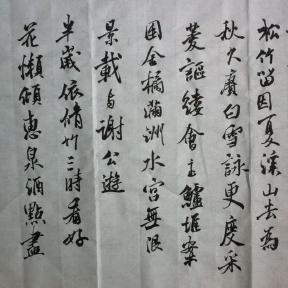 松竹留因夏溪山去為
秋久賡白雪詠更度采
菱謳縷會玉鱸堆案
團金橘滿洲水宮無限
景載與謝公遊
半歲依脩竹三時看好
花懶傾惠泉酒點盡